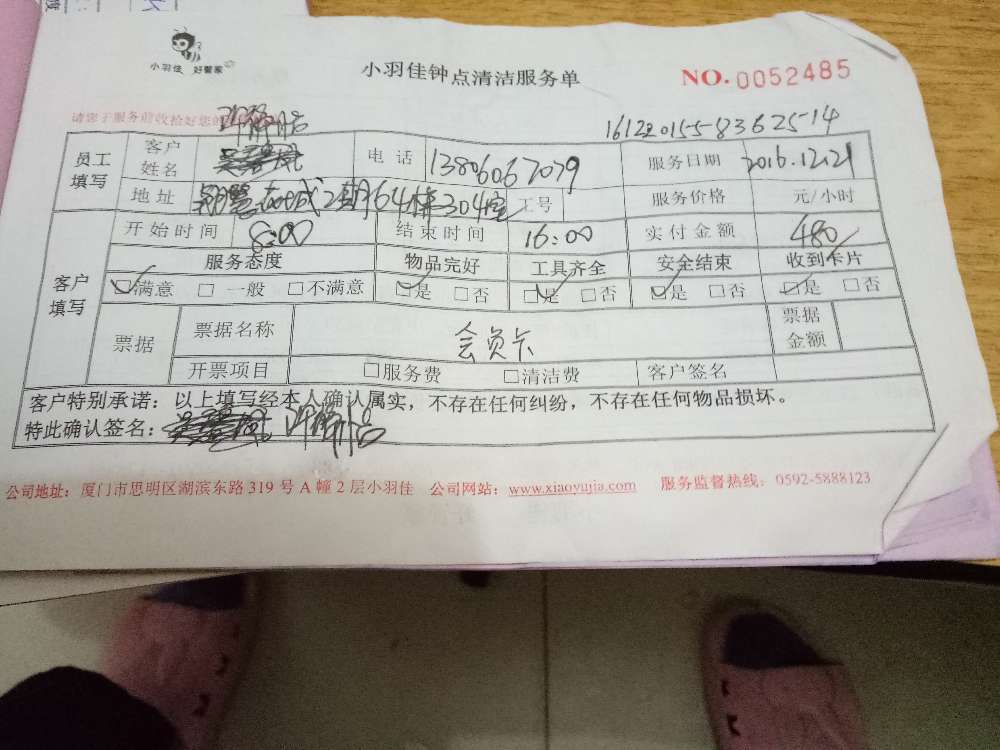 小羽佳 好管家
小羽佳钟点清洁服务单
NO.0052485
请您于服务前收拾好您的
员工填写 客户姓名 电话 13806067079 服务日期 2016.12.21
地址 2期64栋304室 工号 服务价格 元/小时
客户填写 开始时间 8:00 结束时间 16:00 实付金额 480
服务态度 物品完好 工具齐全 安全结束 收到卡片
满意 一般 不满意 是 否 是 否 是 否 是 否
票据 票据名称 会员卡 票据金额
开票项目 服务费 清洁费 客户签名
客户特别承诺：以上填写经本人确认属实，不存在任何纠纷，不存在任何物品损坏。
特此确认签名：
公司地址：厦门市思明区湖滨东路 319 号 A 幢 2 层小羽佳 公司网站：www.xiaoyujia.com 服务监督热线：0592-5888123